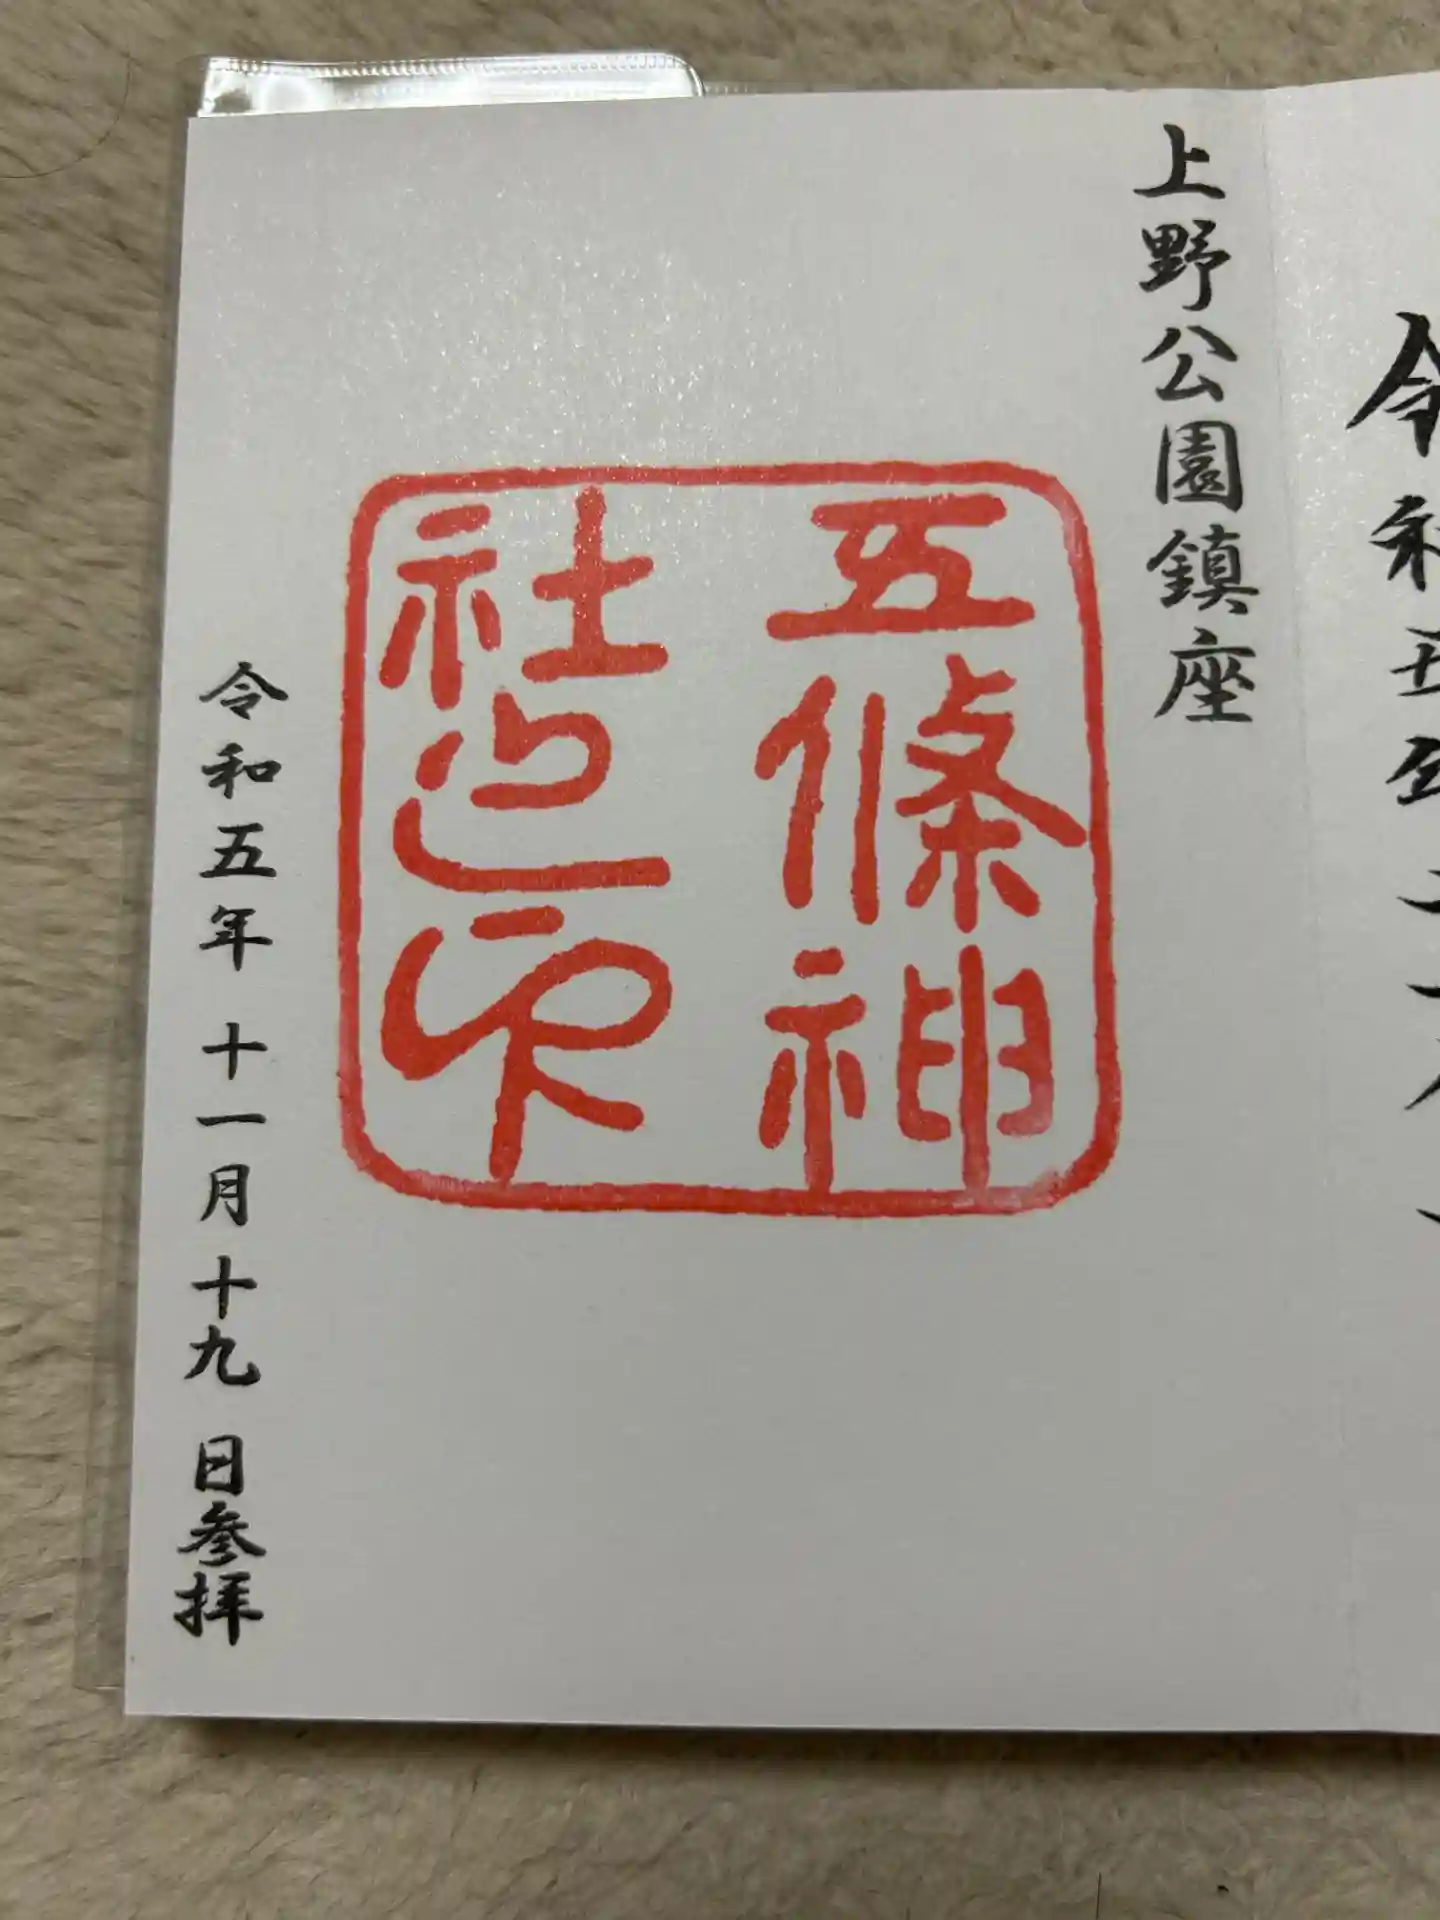 令和五年十一月
上野公園鎮座
五條神
社之印
令和五年 十一月 十九 日参拝